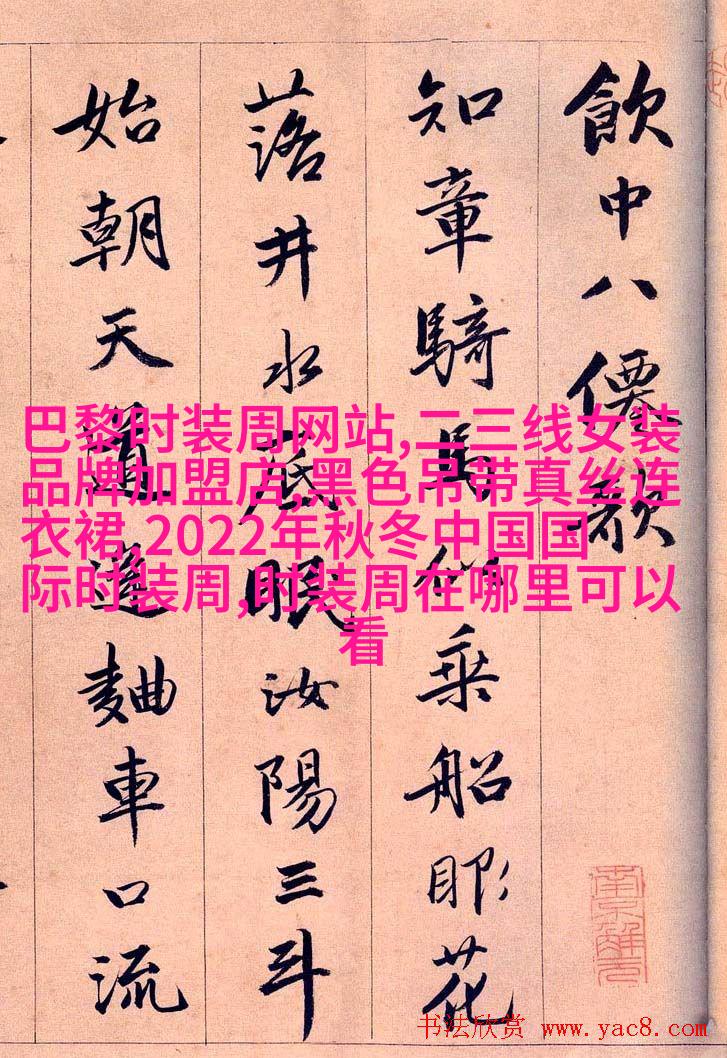 飲中八僊歌
知章騎馬似乘船眼花
落井水底眠汝陽三斗
始朝天道逢麯車口流
巴黎时装周网站,二三线女装
品牌加盟店,黑色吊带真丝连
衣裙,2022年秋冬中国国
际时装周,时装周在哪里可以
看
南京解元
书法欣赏 www.yac8.com